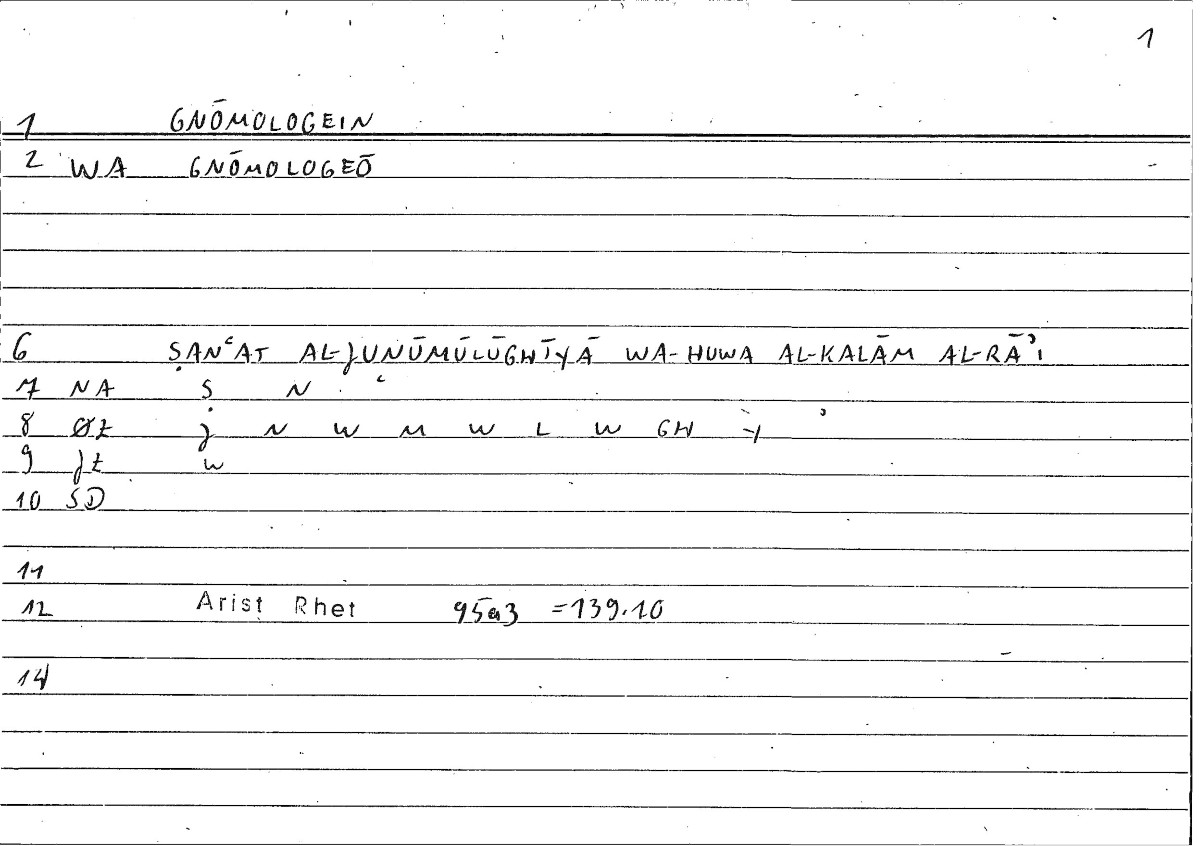 1
1 GNŌMOLOGEIN
2 WA GNŌMOLOGEŌ
6 ṢANʿAT AL-JUNŪMŪLŪGHĪYĀ WA-HUWA AL-KALĀM AL-RĀʾI
7 NA Ṣ N ʿ
8 ØŁ J N W M W L W GH Y ʾ
9 JŁ W
10 SD
11
12 Arist Rhet 95a3 =139.10
14